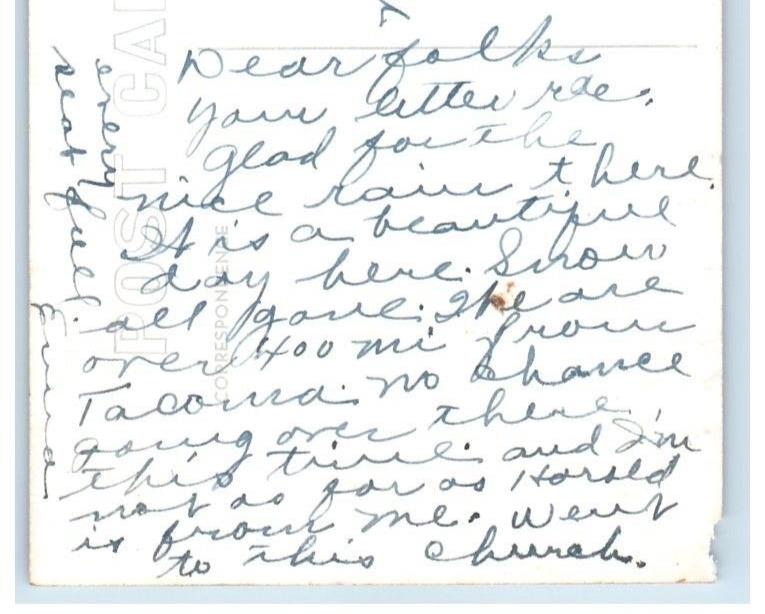 Dear folks
your letter rec.
glad for the
nice rain there.
It is a beautiful
day here. Snow
all gone. We are
over 400 mi from
Tacoma. no chance
going over there
this time. and I'm
not as far as Harold
is from me. Went
to this church.
every
seat full
Emma
POST CA
CORRESPONDENCE